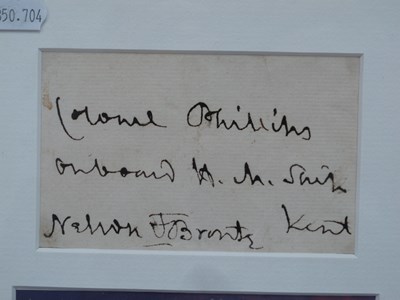 850.704
Colonel Phillips
onboard H. M. Ship
Nelson & Bronte Kent